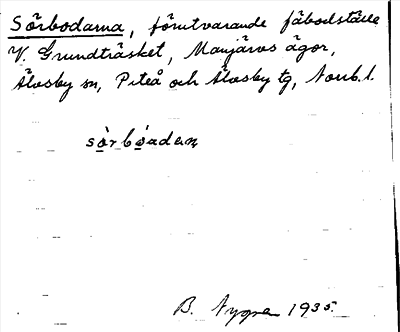 Sörbodarna, förutvarande fäbodställe
V. Grundträsket, Manjärvs ägor,
Älvsby sn, Piteå och Älvsby tg, Norrb. l.
sòrbóadan
B. Nygren 1935.